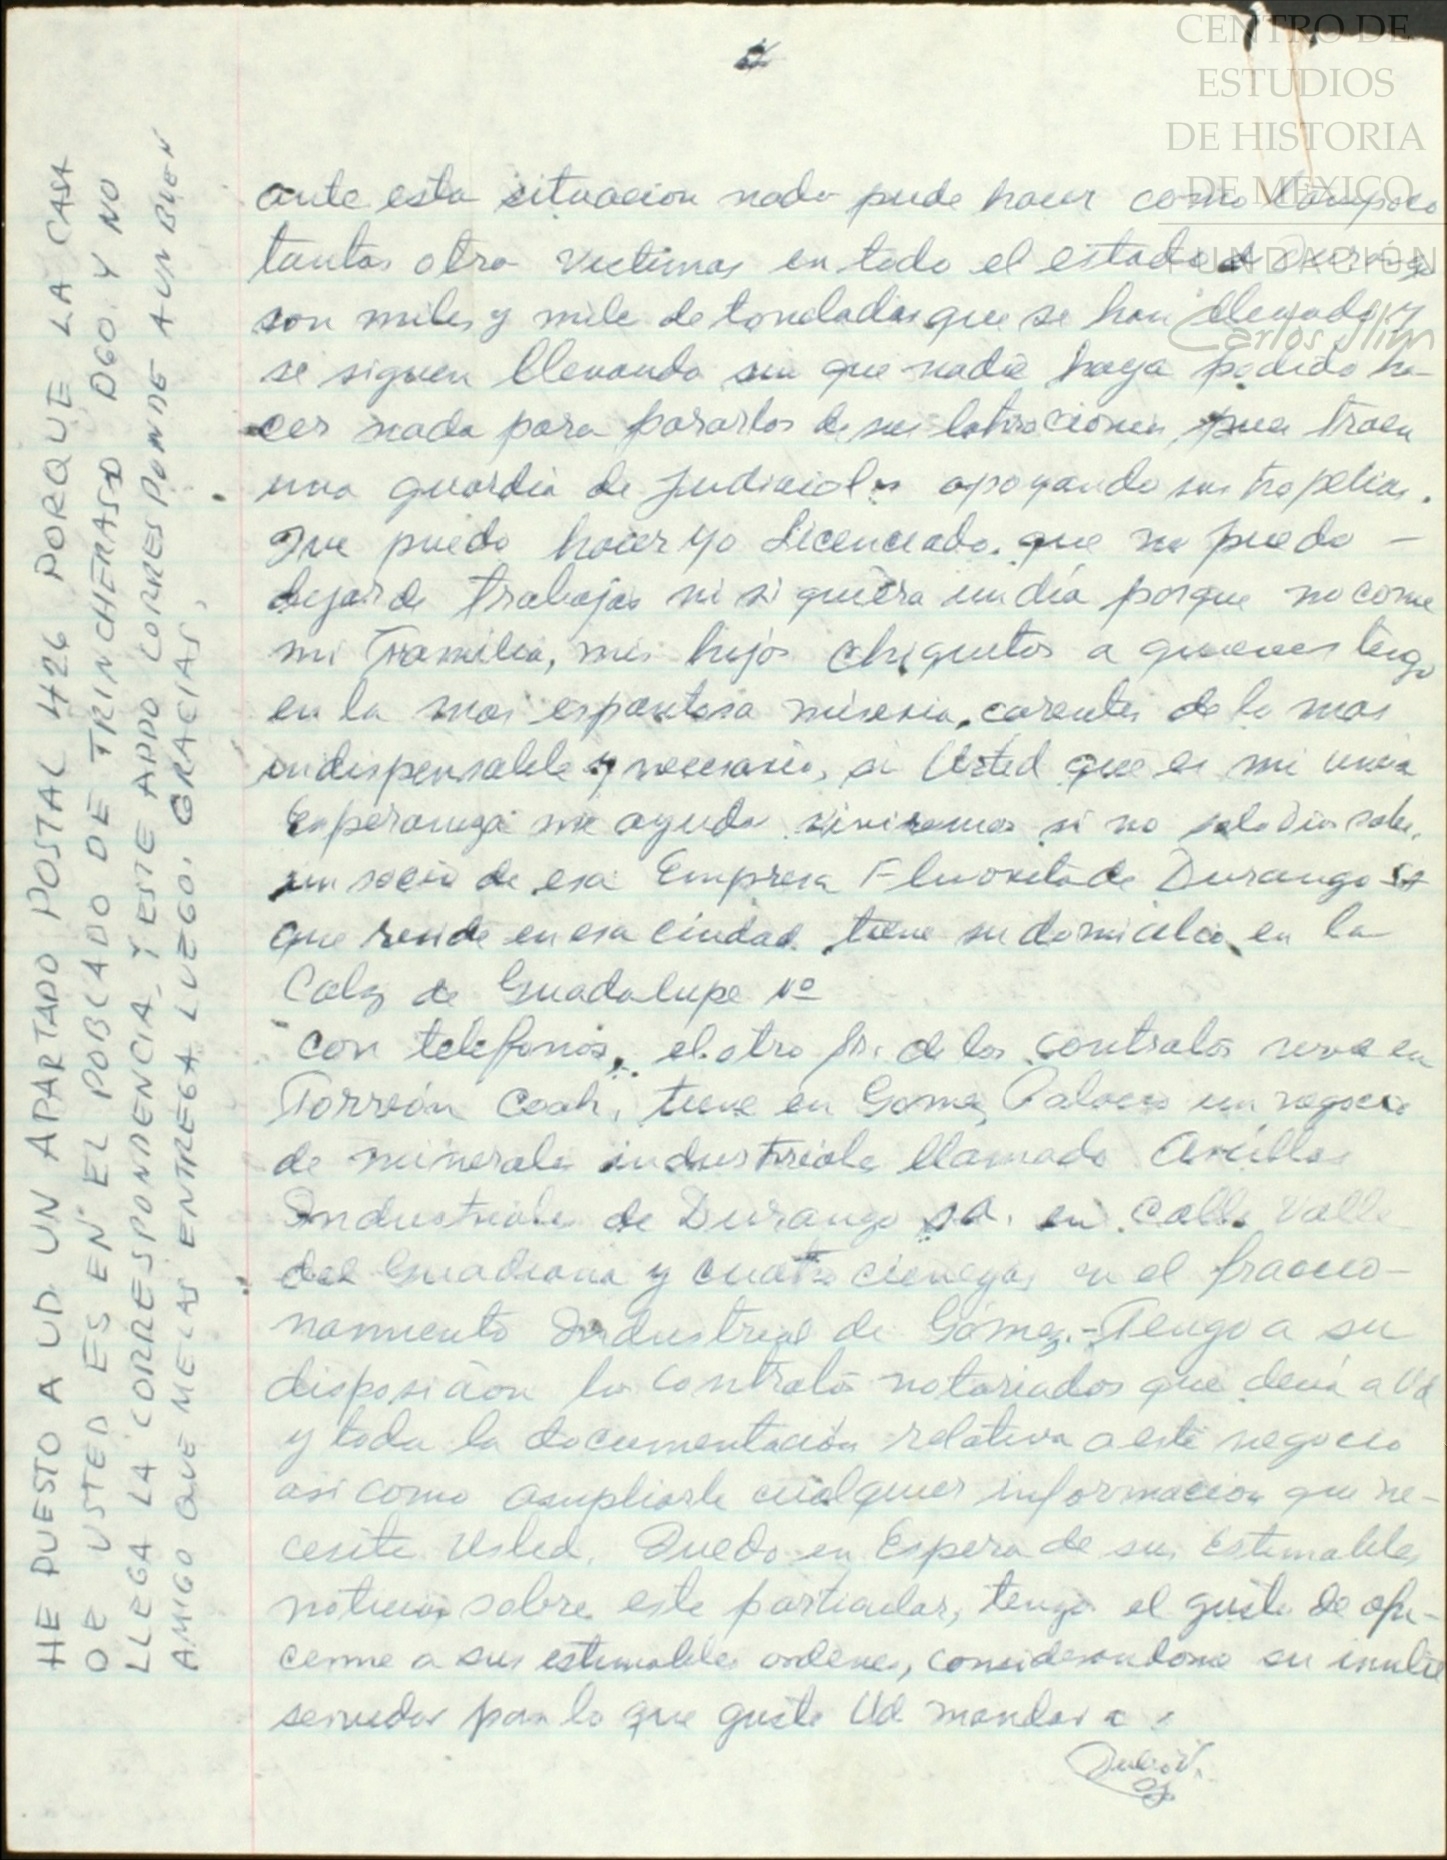 CENTRO DE
ESTUDIOS
DE HISTORIA
DE MÉXICO
FUNDACIÓN
Carlos Slim
ante esta situacion nada pude hacer como tampoco
tantas otra victimas en todo el estado de Durango
son miles y mile de toneladas que se han llevado y
se siguen llevando sin que nadie haya podido ha-
cer nada para pararlos de sus latrociones, pues traen
una guardia de judiciales apoyando sus tropelias.
Que puedo hacer yo Licenciado. que no puedo -
dejar de trabajar ni siquiera un dia porque no come
mi Framilia, mis hijos chiquitos a quienes tengo
en la mas espantosa miseria, carentes de lo mas
indispensable y necesario, si Usted que es mi unica
Esperanza me ayuda viviremos si no solo Dios sabe.
un socio de esa Empresa Fluorita de Durango SA
que reside en esa ciudad tiene su domicilio en la
Calz de Guadalupe No
con telefonos, el otro fir. de los contratos vive en
Torreón Coah, tiene en Gomez Palacio un negocio
de minerales industriale llamado Arcillas
Industriales de Durango SA. en calle Valle
del Guadiana y cuatro cienegas en el fraccio-
namiento Industrial de Gómez.- Tengo a su
disposicion los contratos notariados que decia a Ud
y toda la documentación relativa a este negocio
asi como ampliarle cualquier informacion que ne-
cesite Usted. Quedo en Espera de sus Estimables
noticias sobre este particular, tengo el gusto de ofre-
cerme a sus estimables ordenes, considerandome su inutil
servidor para lo que guste Ud mandar
HE PUESTO A UD UN APARTADO POSTAL 426 PORQUE LA CASA
DE USTED ES EN EL POBLADO DE TRINCHERAS DGO. Y NO
LLEGA LA CORRESPONDENCIA, Y ESTE APDO CORRESPONDE A UN BUEN
AMIGO QUE ME LAS ENTREGA LUEGO. GRACIAS,